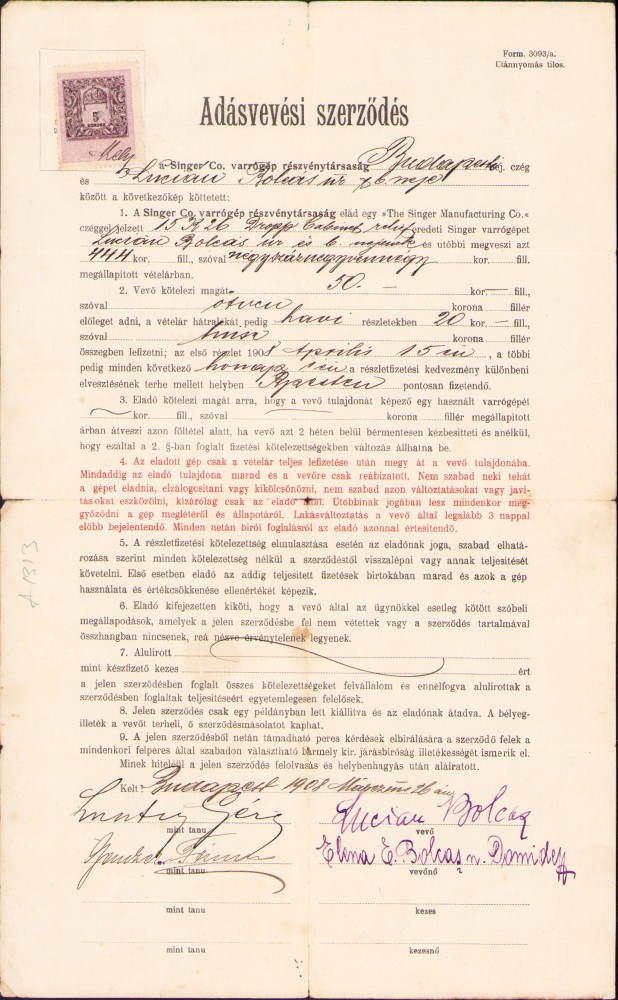 Form. 3093/a.
Utánnyomás tilos.
5
KORONA
Adásvevési szerződés
Mely
a Singer Co. varrógép részvénytársaság Budapesti bej. czég
és Lucián Bolcás úr és b. neje
között a következőkép köttetett:
1. A Singer Co. varrógép részvénytársaság elád egy »The Singer Manufacturing Co.«
czéggel jelzett 15 K 26 Dropp Cabinet eredeti Singer varrógépet
Lucián Bolcás úr és b. nejének és utóbbi megveszi azt
444 kor. fill., szóval négyszáznegyvennégy kor. fill.
megállapított vételárban.
2. Vevő kötelezi magát 50.— kor.— fill.,
szóval ötven korona fillér
előleget adni, a vételár hátralékát pedig havi részletekben 20 kor. — fill.,
szóval husz korona fillér
összegben lefizetni; az első részlet 1908 április 15 én, a többi
pedig minden következő hónap én a részletfizetési kedvezmény különbeni
elvesztésének terhe mellett helyben Bpesten pontosan fizetendő.
3. Eladó kötelezi magát arra, hogy a vevő tulajdonát képező egy használt varrógépét
— kor. fill., szóval — korona fillér megállapított
árban átveszi azon föltétel alatt, ha vevő azt 2 héten belül bérmentesen kézbesitteti és anélkül,
hogy ezáltal a 2. §-ban foglalt fizetési kötelezettségekben változás állhatna be.
4. Az eladott gép csak a vételár teljes lefizetése után megy át a vevő tulajdonába.
Mindaddig az eladó tulajdona marad és a vevőre csak reábizatott. Nem szabad neki tehát
a gépet eladnia, elzálogositani vagy kikölcsönözni, nem szabad azon változtatásokat vagy javi-
tásokat eszközölni, kizárólag csak az eladó által. Utóbbinak jogában lesz mindenkor meg-
győződni a gép meglétéről és állapotáról. Lakásváltoztatás a vevő által legalább 3 nappal
előbb bejelentendő. Minden netán birói foglalásról az eladó azonnal értesitendő.
5. A részletfizetési kötelezettség elmulasztása esetén az eladónak joga, szabad elhatá-
rozása szerint minden kötelezettség nélkül a szerződéstől visszalépni vagy annak teljesitését
követelni. Első esetben eladó az addig teljesitett fizetések birtokában marad és azok a gép
használata és értékcsökkenése ellenértékét képezik.
6. Eladó kifejezetten kiköti, hogy a vevő által az ügynökkel esetleg kötött szóbeli
megállapodások, amelyek a jelen szerződésbe fel nem vétettek vagy a szerződés tartalmával
összhangban nincsenek, reá nézve érvénytelenek legyenek.
7. Alulirott
mint készfizető kezes ért
a jelen szerződésben foglalt összes kötelezettségeket felvállalom és ennélfogva alulirottak a
szerződésben foglaltak teljesitéseért egyetemlegesen felelősek.
8. Jelen szerződés csak egy példányban lett kiállitva és az eladónak átadva. A bélyeg-
illeték a vevőt terheli, ő szerződésmásolatot kaphat.
9. A jelen szerződésből netán támadható peres kérdések elbirálására a szerződő felek a
mindenkori felperes által szabadon választható bármely kir. járásbiróság illetékességét ismerik el.
Minek hiteléül a jelen szerződés felolvasás és helybenhagyás után aláiratott.
Kelt: Budapest 1908 Március 26 án
Lucian Bolcaș
mint tanu vevő
Elena E. Bolcaș n. Damideff
mint tanu vevőnő
mint tanu kezes
mint tanu kezesnő
A 1313